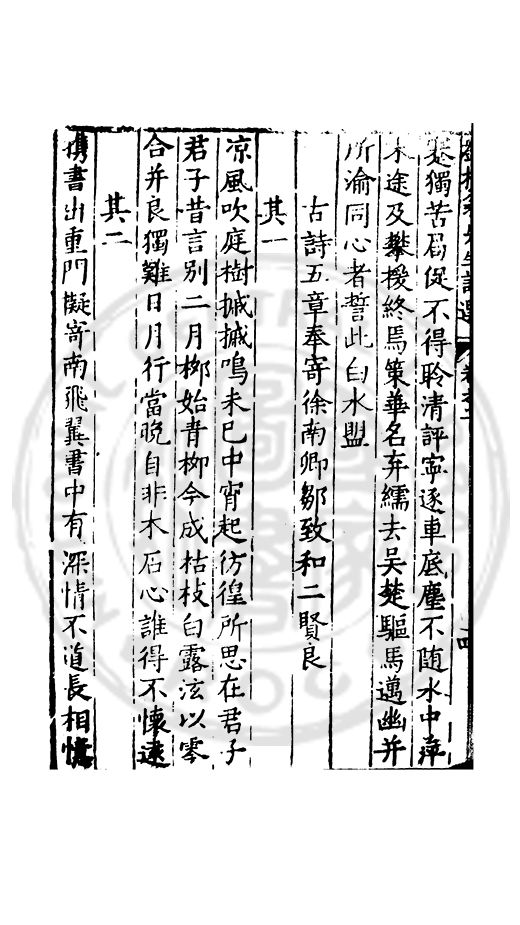 獨苦局促不得聆清評寧逐車底塵不随水中萍
末途及攀援終焉策華名弃繻去吴楚驅馬邁幽并
所渝同心者誓此白水盟
古詩五章奉寄徐南卿鄒致和二賢良
其一
凉風吹庭樹摵摵鳴未已中宵起彷徨所思在君子
君子昔言别二月栁始青栁今成枯枝白露泫以零
合并良獨難日月行當晚自非木石心誰得不懷遠
其二
携書出重門擬寄南飛翼書中有深情不道長相憶